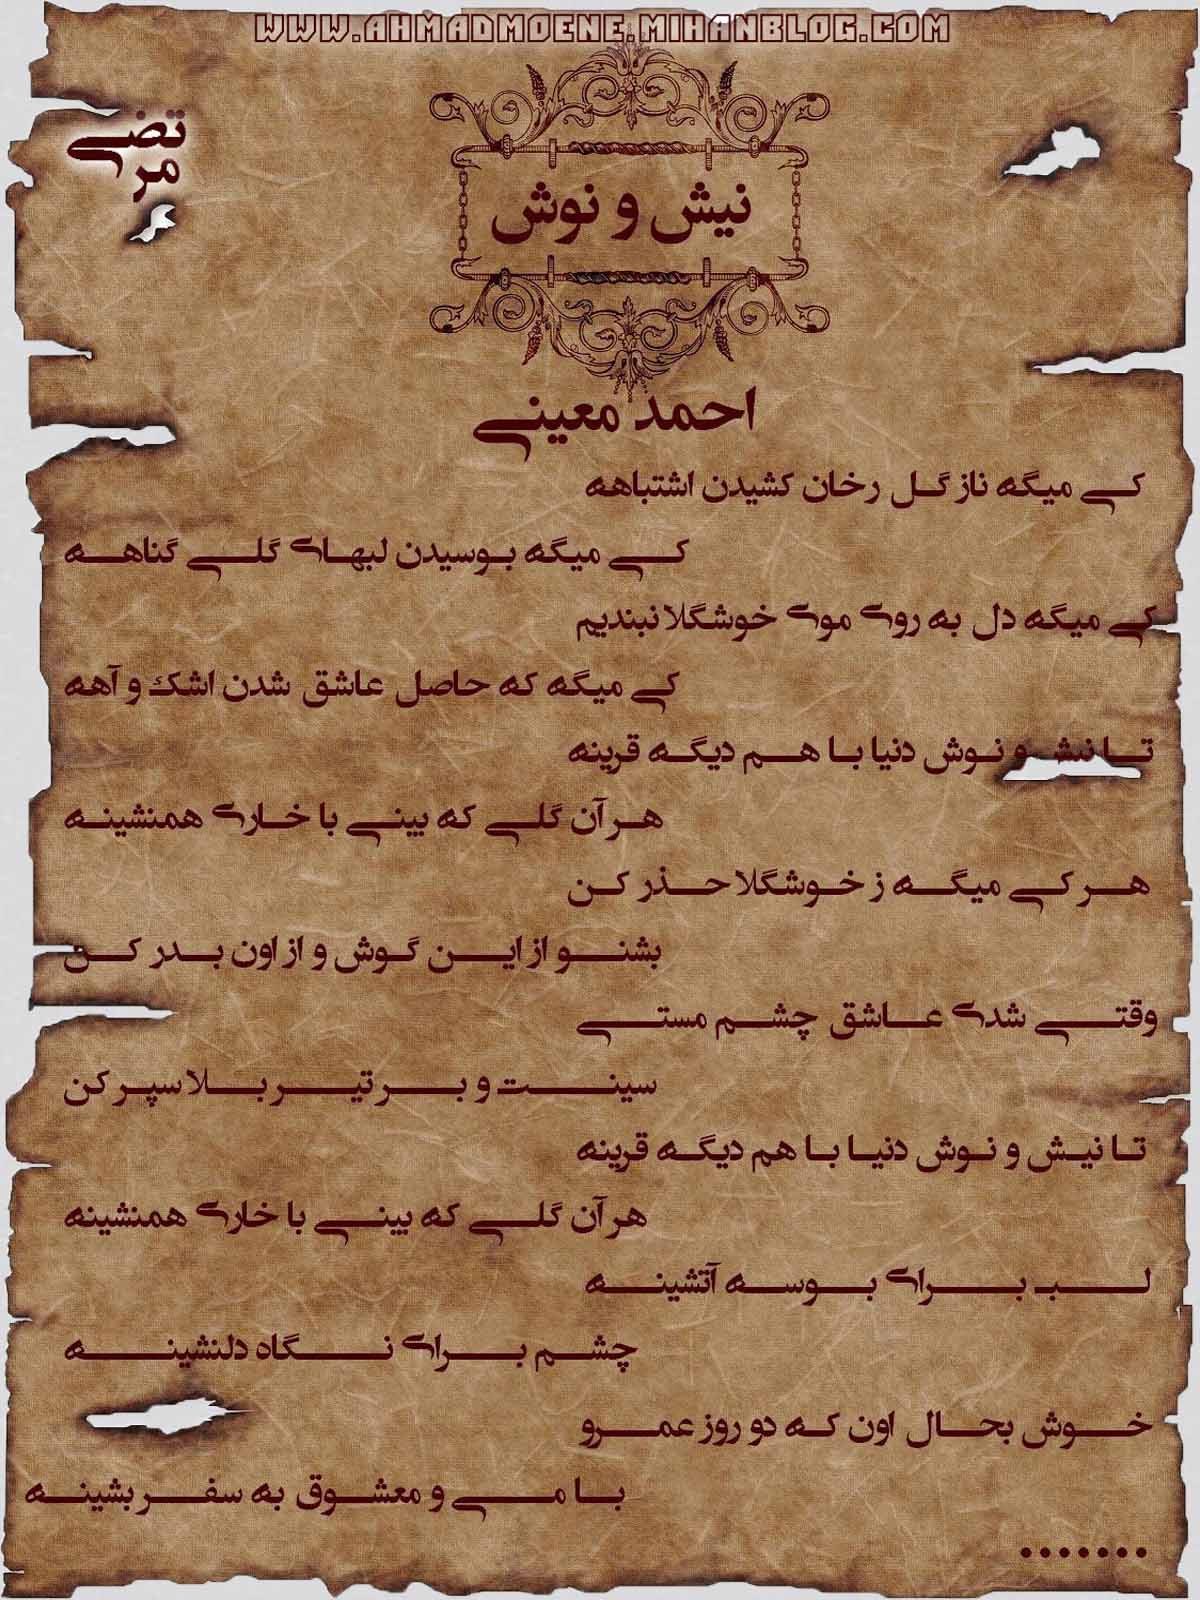 WWW.AHMADMOENE.MIHANBLOG.COM
مرتضی
نیش و نوش
احمد معینی
کی میگه ناز گل رخان کشیدن اشتباهه
کی میگه بوسیدن لبهای گلی گناهه
کی میگه دل به روی موی خوشگلا نبندیم
کی میگه که حاصل عاشق شدن اشک و آهه
تا نیش و نوش دنیا با هم دیگه قرینه
هر آن گلی که بینی با خاری همنشینه
هر کی میگه ز خوشگلا حذر کن
بشنو از این گوش و از اون بدر کن
وقتی شدی عاشق چشم مستی
سینت و بر تیر بلا سپر کن
تا نیش و نوش دنیا با هم دیگه قرینه
هر آن گلی که بینی با خاری همنشینه
لب برای بوسه آتشینه
چشم برای نگاه دلنشینه
خوش بحال اون که دو روز عمرو
با می و معشوق به سفر بشینه
.......